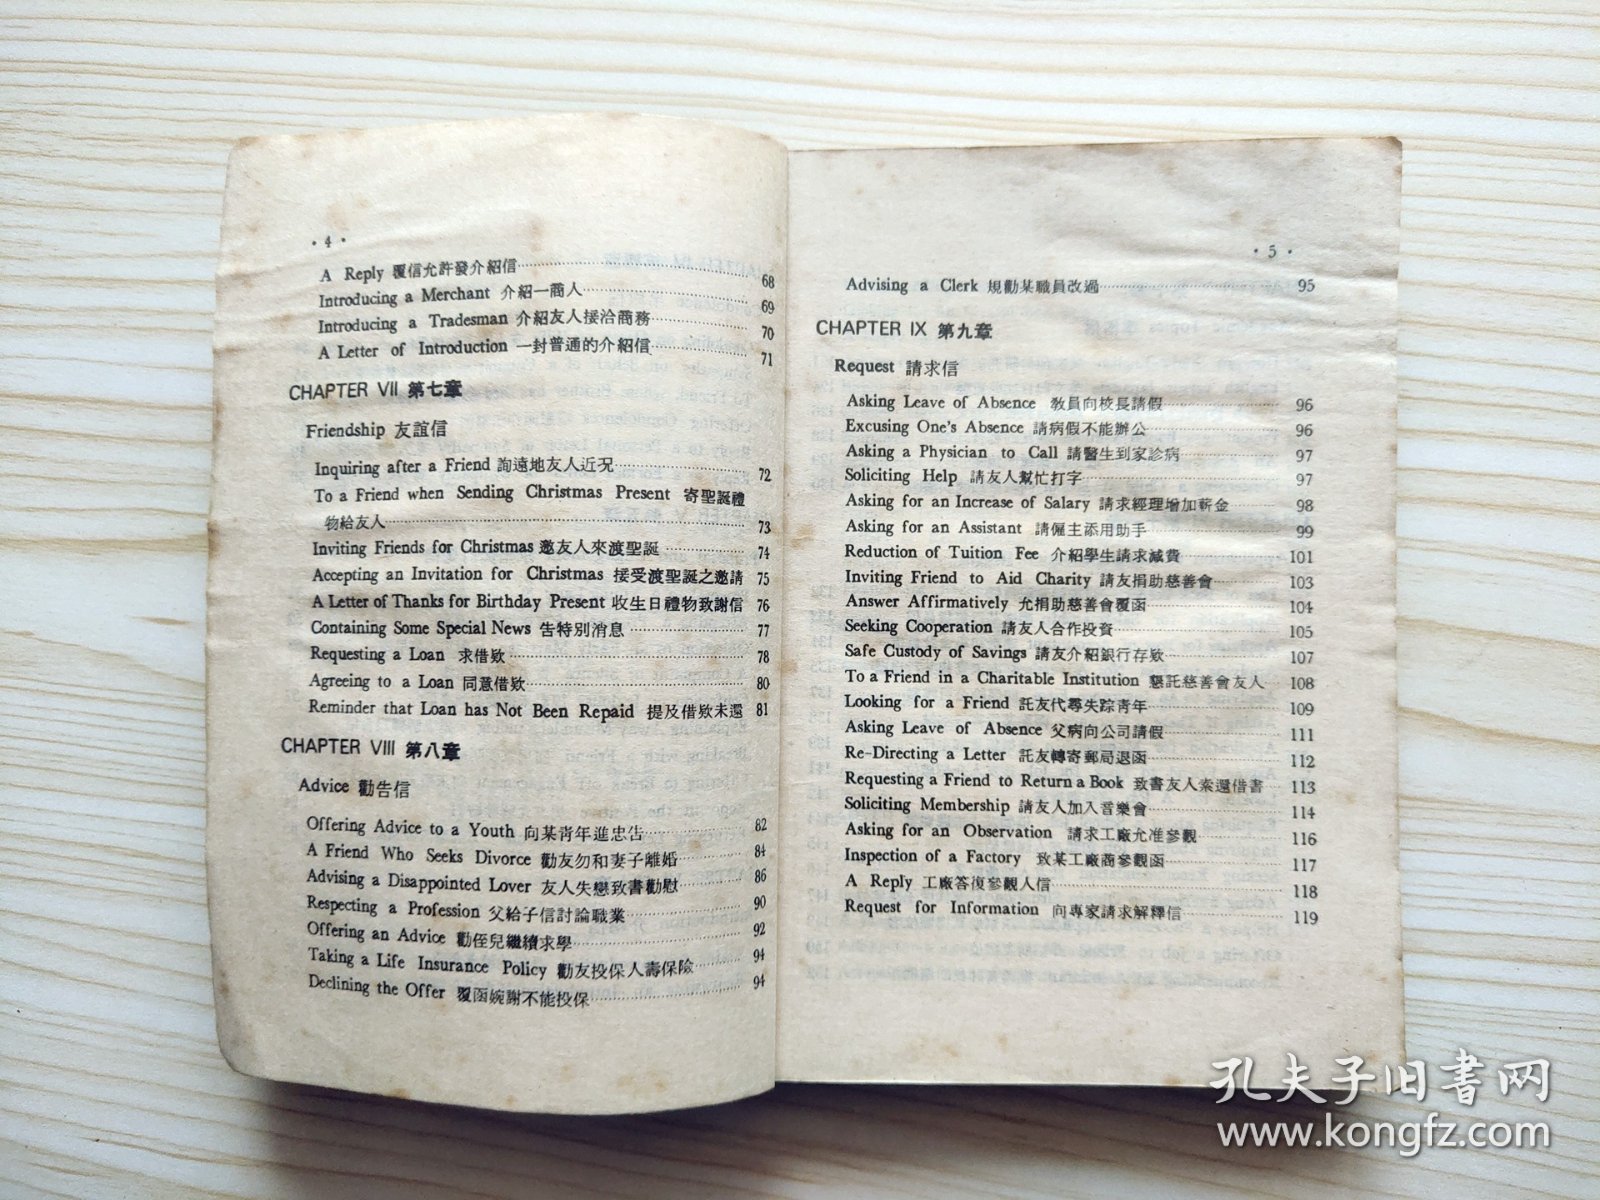 • 4 •
A Reply 覆信允許發介紹信 68
Introducing a Merchant 介紹一商人 69
Introducing a Tradesman 介紹友人接洽商務 70
A Letter of Introduction 一封普通的介紹信 71
CHAPTER VII 第七章
Friendship 友誼信
Inquiring after a Friend 詢遠地友人近况 72
To a Friend when Sending Christmas Present 寄聖誕禮
物給友人 73
Inviting Friends for Christmas 邀友人來渡聖誕 74
Accepting an Invitation for Christmas 接受渡聖誕之邀請 75
A Letter of Thanks for Birthday Present 收生日禮物致謝信 76
Containing Some Special News 告特別消息 77
Requesting a Loan 求借欵 78
Agreeing to a Loan 同意借欵 80
Reminder that Loan has Not Been Repaid 提及借欵未還 81
CHAPTER VIII 第八章
Advice 勸告信
Offering Advice to a Youth 向某青年進忠告 82
A Friend Who Seeks Divorce 勸友勿和妻子離婚 84
Advising a Disappointed Lover 友人失戀致書勸慰 86
Respecting a Profession 父給子信討論職業 90
Offering an Advice 勸侄兒繼續求學 92
Taking a Life Insurance Policy 勸友投保人壽保險 94
Declining the Offer 覆函婉謝不能投保 94
• 5 •
Advising a Clerk 規勸某職員改過 95
CHAPTER IX 第九章
Request 請求信
Asking Leave of Absence 教員向校長請假 96
Excusing One's Absence 請病假不能辦公 96
Asking a Physician to Call 請醫生到家診病 97
Soliciting Help 請友人幫忙打字 97
Asking for an Increase of Salary 請求經理增加薪金 98
Asking for an Assistant 請僱主添用助手 99
Reduction of Tuition Fee 介紹學生請求減費 101
Inviting Friend to Aid Charity 請友捐助慈善會 103
Answer Affirmatively 允捐助慈善會覆函 104
Seeking Cooperation 請友人合作投資 105
Safe Custody of Savings 請友介紹銀行存欵 107
To a Friend in a Charitable Institution 懇託慈善會友人 108
Looking for a Friend 託友代尋失踪青年 109
Asking Leave of Absence 父病向公司請假 111
Re-Directing a Letter 託友轉寄郵局退函 112
Requesting a Friend to Return a Book 致書友人索還借書 113
Soliciting Membership 請友人加入音樂會 114
Asking for an Observation 請求工廠允准參觀 116
Inspection of a Factory 致某工廠商參觀函 117
A Reply 工廠答復參觀人信 118
Request for Information 向專家請求解釋信 119
孔夫子旧書网
www.kongfz.com